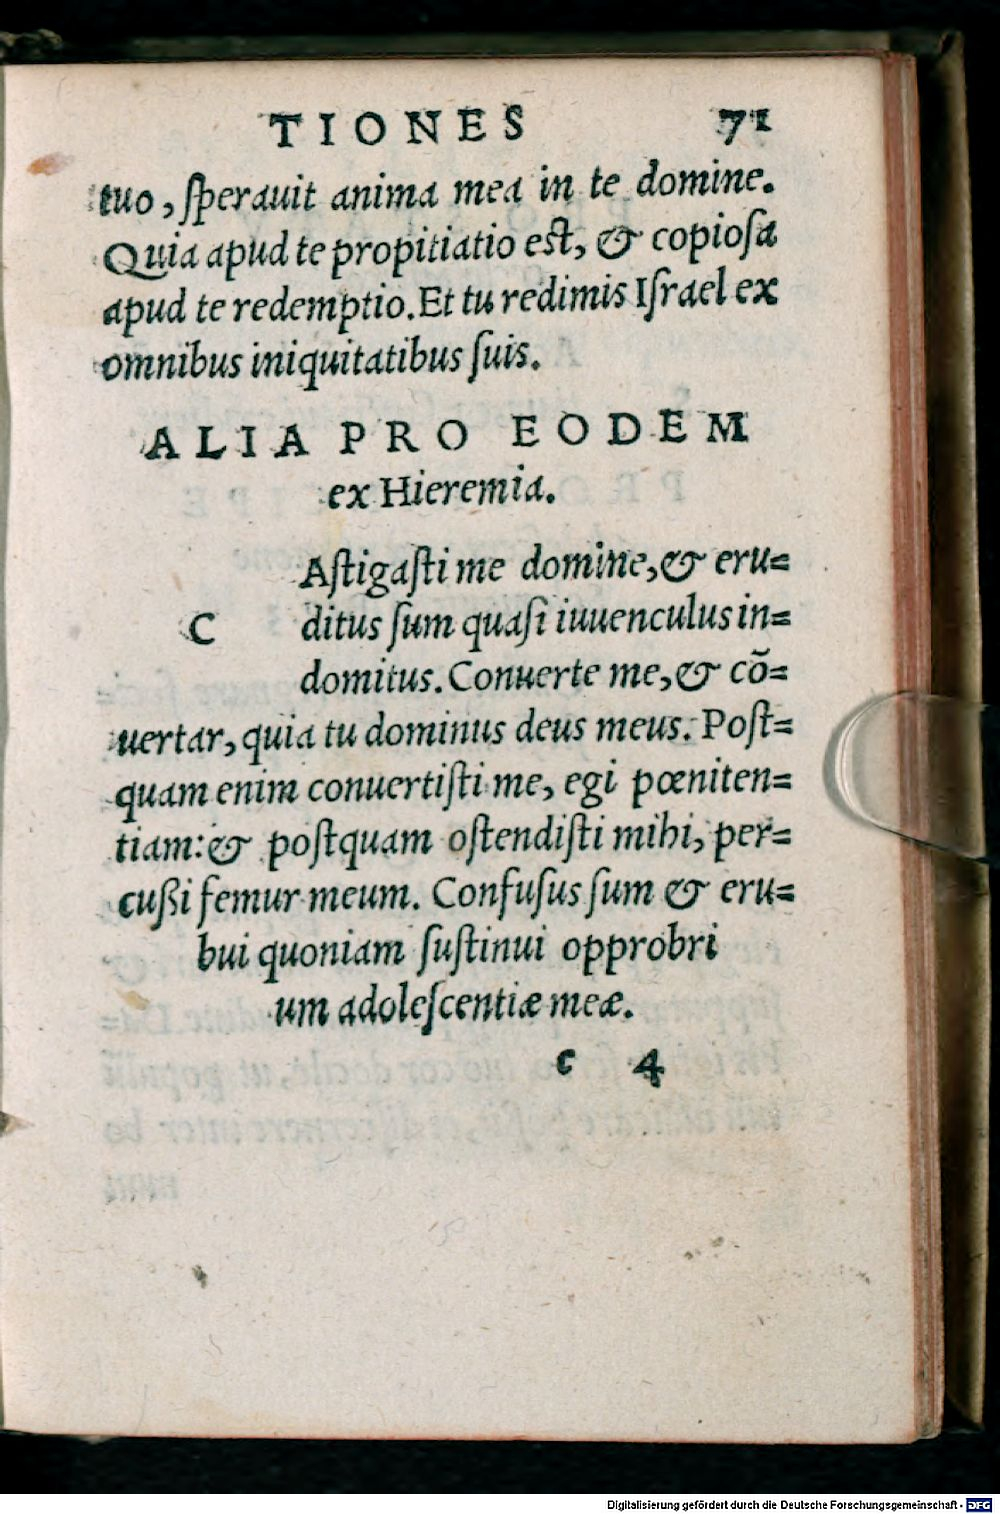 TIONES 71
tuo, ſperauit anima mea in te domine.
Quia apud te propitiatio eſt, & copioſa
apud te redemptio. Et tu redimis Iſrael ex
omnibus iniquitatibus ſuis.
ALIA PRO EODEM
ex Hieremia.
Aſtigaſti me domine, & eru=
C ditus ſum quaſi iuuenculus in=
domitus. Conuerte me, & cō=
uertar, quia tu dominus deus meus. Poſt=
quam enim conuertiſti me, egi pœniten=
tiam: & poſtquam oſtendiſti mihi, per=
cußi femur meum. Confuſus ſum & eru=
bui quoniam ſuſtinui opprobri
um adoleſcentiæ meæ.
c 4
Digitalisierung gefördert durch die Deutsche Forschungsgemeinschaft - DFG